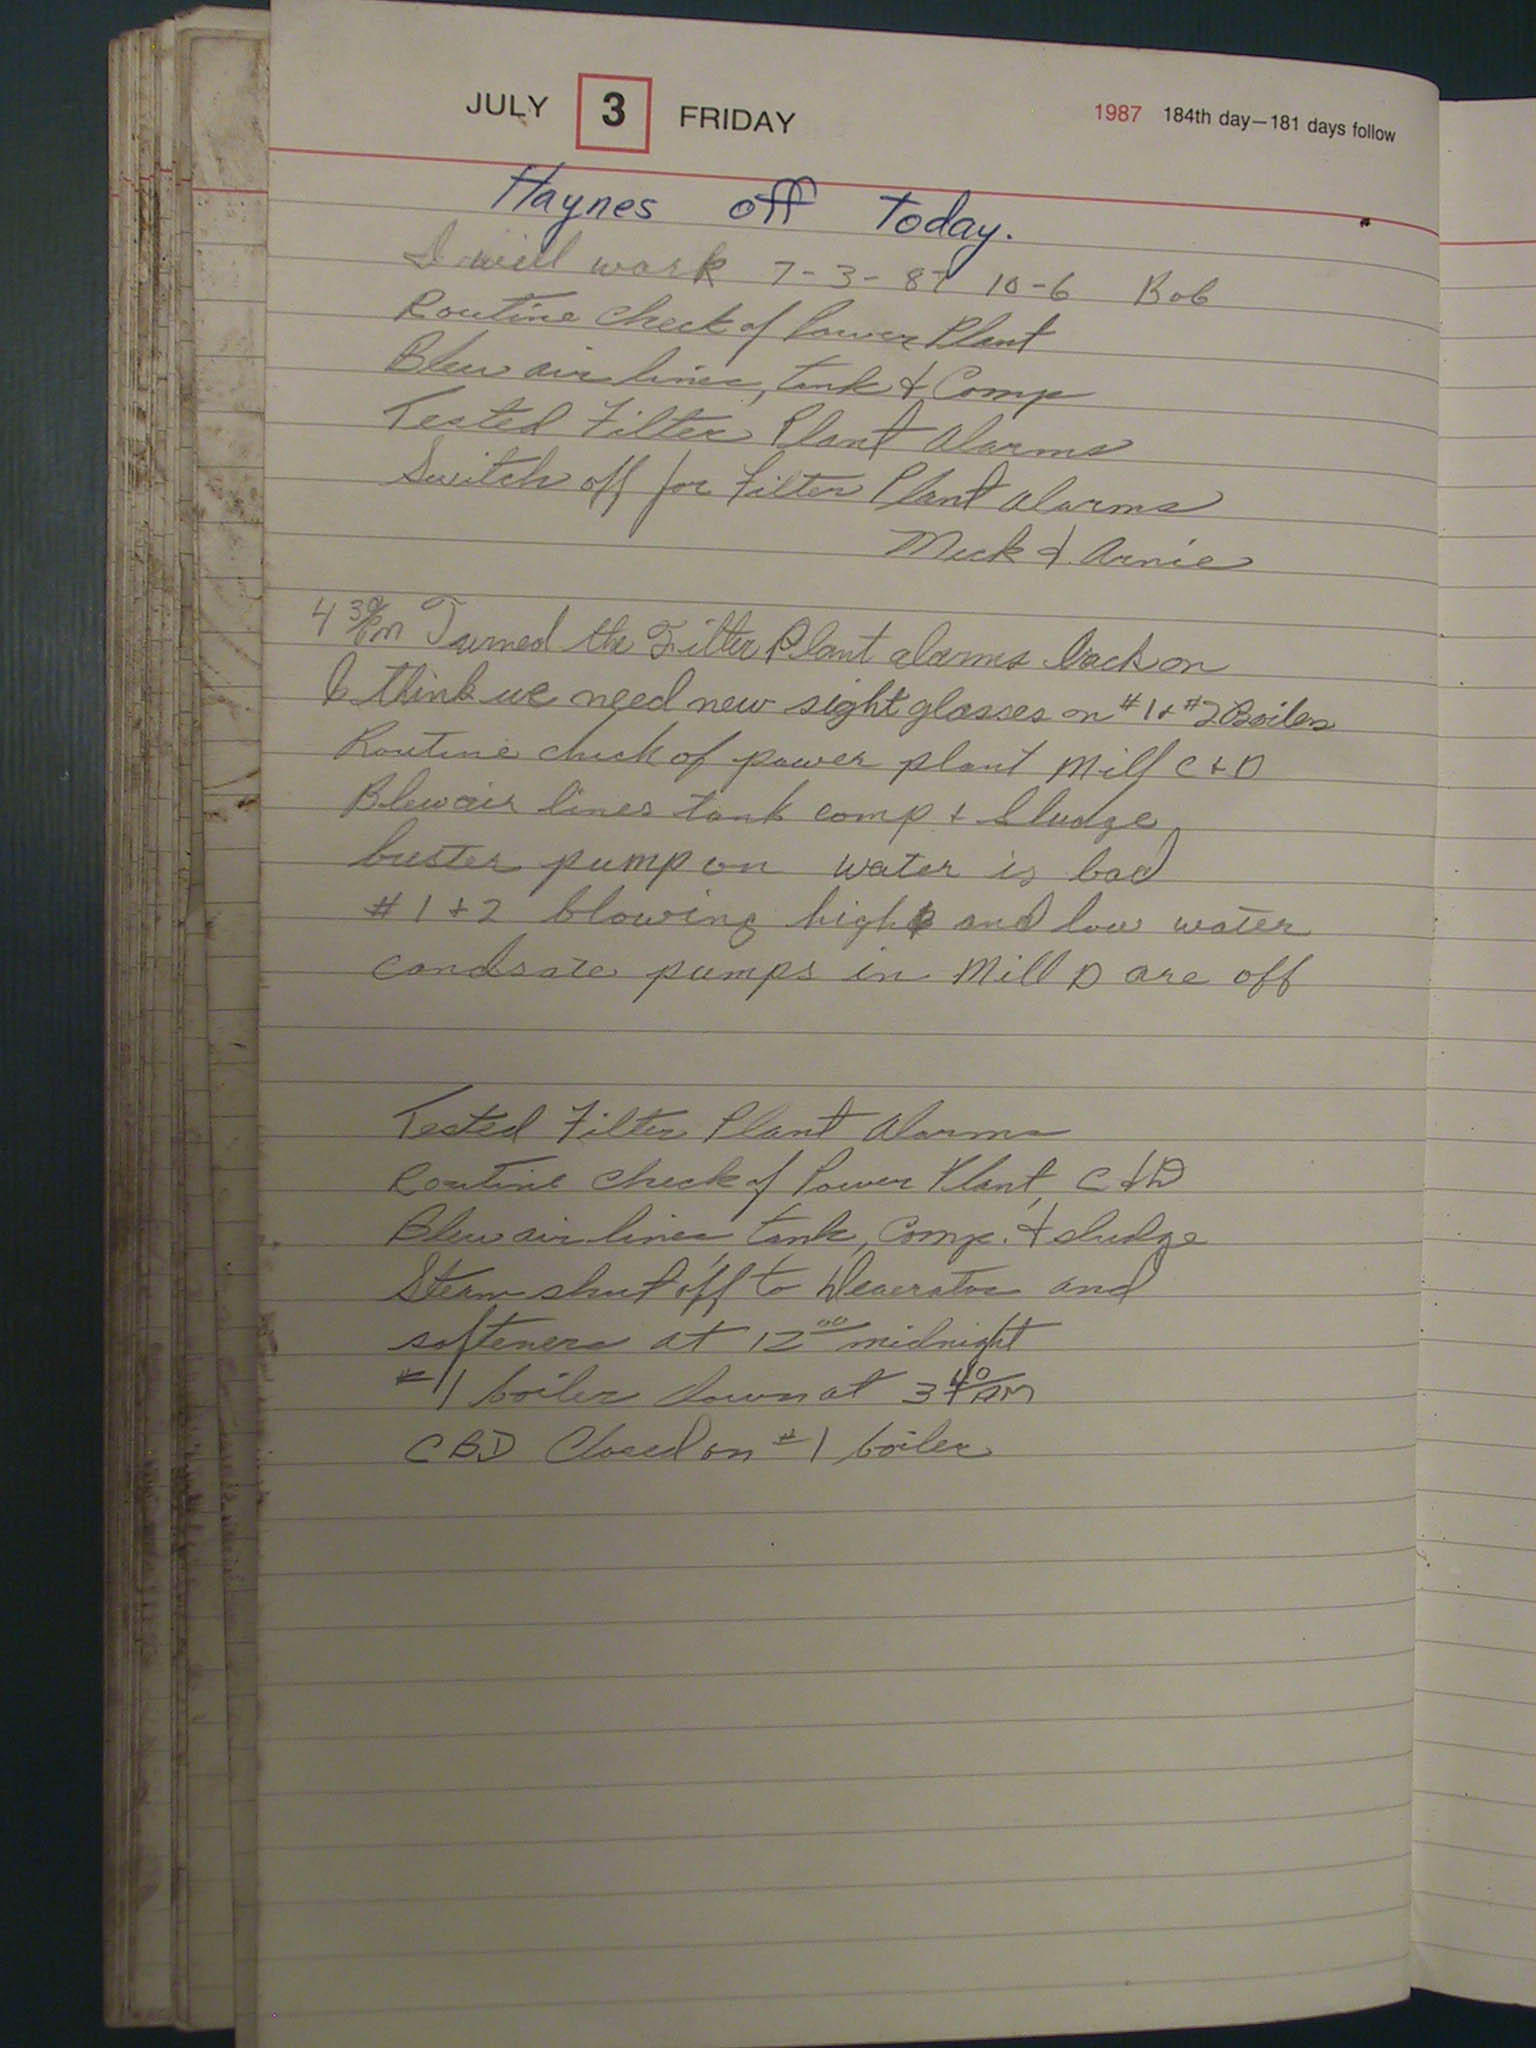 JULY 3 FRIDAY 1987 184th day—181 days follow
Haynes off Today.
I will work 7-3-87 10-6 Bob
Routine check of Power Plant
Blew air lines, tank & Comp
Tested Filter Plant Alarms
Switch off for Filter Plant Alarms
Meck & Arnie
4 30 PM Turned the Filter Plant alarms back on
I think we need new sight glasses on #1 + #2 Boilers
Routine check of power plant Mill C + D
Blew air lines tank comp + Sludge
buster pump on water is bad
#1 + 2 blowing high and low water
condsate pumps in Mill D are off
Tested Filter Plant Alarms
Routine check of Power Plant, C & D
Blew air lines, tank, Comp. & sludge
Steam shut off to Deaerator and
softeners at 12 00 midnight
#1 boiler down at 3 40 AM
CBD Closed on #1 boiler